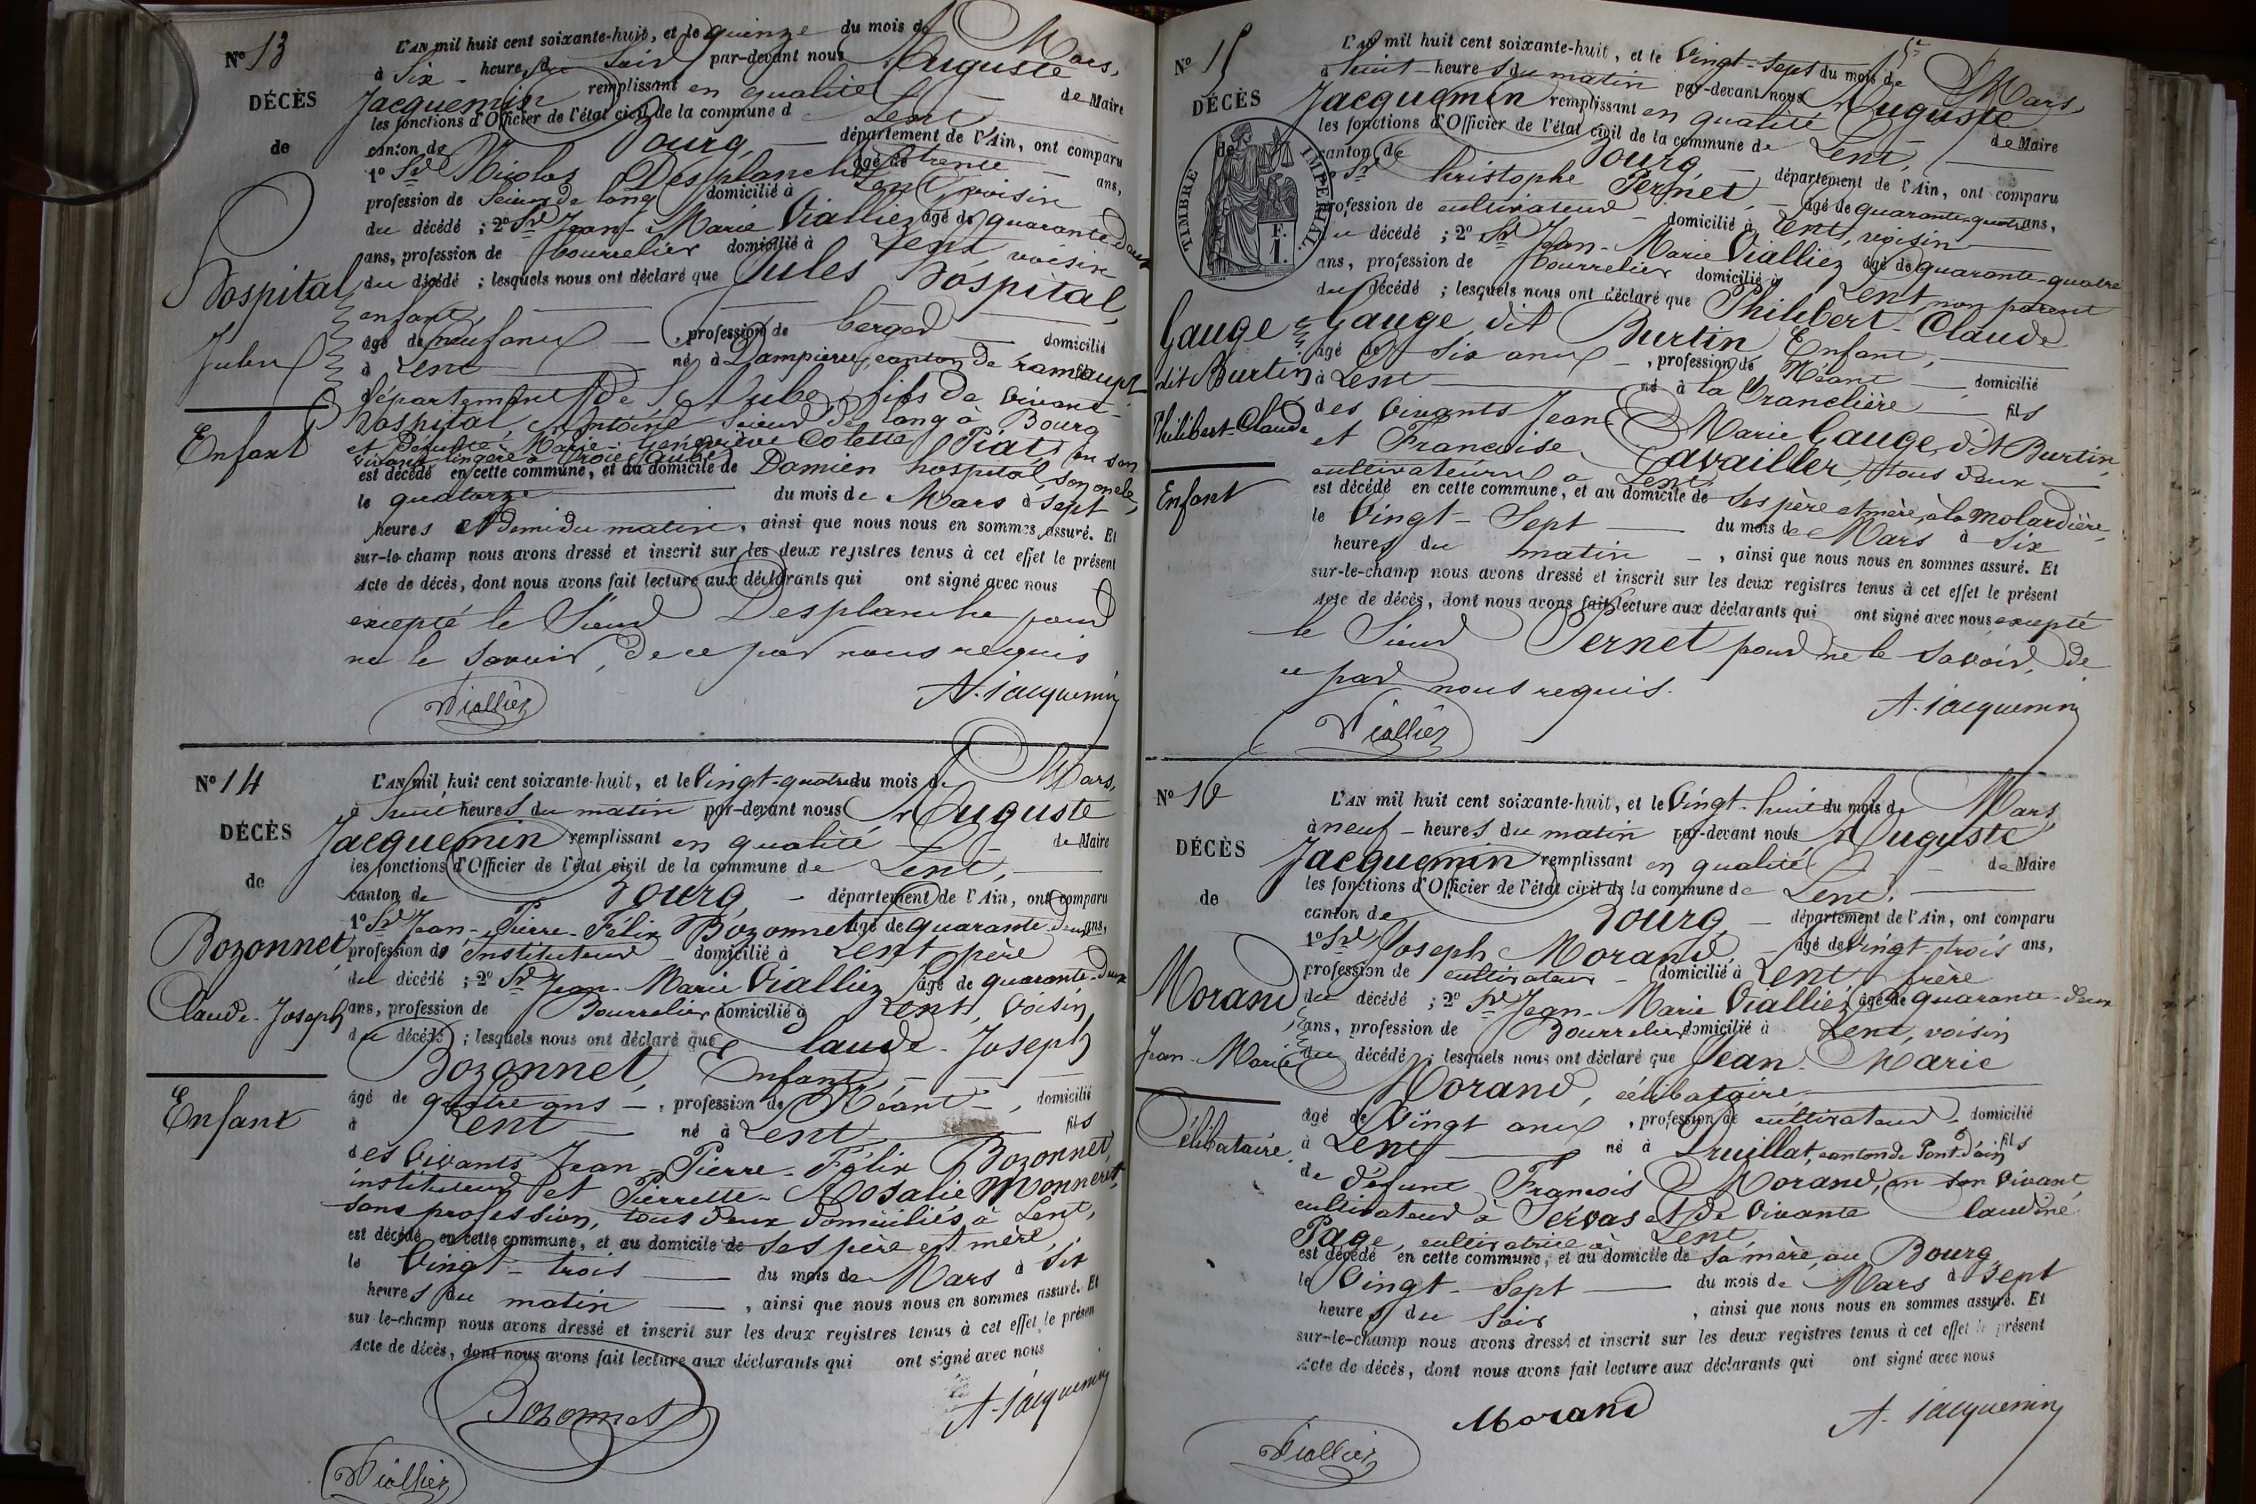 Nº 13
DÉCÈS
de
Hospital
Jules
Enfant
L'AN mil huit cent soixante-huit, et le quinze du mois de Mars,
à Six heures du soir par-devant nous Auguste
Jacquemin remplissant en qualité de Maire
les fonctions d'Officier de l'état civil de la commune d Lent
canton de Bourg, département de l'Ain, ont comparu
1º Sr Nicolas Desplanche âgé de trente ans,
profession de Scieur de long domicilié à Lent voisin
du décédé ; 2º Sr Jean-Marie Vialliez âgé de quarante-deux
ans, profession de Bourrelier domicilié à Lent, voisin
du décédé ; lesquels nous ont déclaré que Jules Hospital,
enfant,
âgé de neuf ans, profession de berger domicilié
à Lent né à Dampierre, canton de Ramerupt
département de l'Aube, fils de vivant
Hospital, Antoine Scieur de long à Bourg
et Défunte Marie-Geneviève Colette Piat, en son
vivant lingère à Troie (Aube)
est décédé en cette commune, et au domicile de Damien hospital, son oncle,
le quatorze du mois de Mars à Sept
heures et demi du matin, ainsi que nous nous en sommes assuré. Et
sur-le-champ nous avons dressé et inscrit sur les deux registres tenus à cet effet le présent
Acte de décès, dont nous avons fait lecture aux déclarants qui ont signé avec nous
excepté le Sieur Desplanche pour
ne le savoir, de ce par nous requis
Viallier A. Jacquemin
Nº 14
DÉCÈS
de
Bozonnet,
Claude-Joseph
Enfant
L'AN mil huit cent soixante-huit, et le Vingt-quatre du mois de Mars,
à huit heures du matin par-devant nous Sr Auguste
Jacquemin remplissant en qualité de Maire
les fonctions d'Officier de l'état civil de la commune de Lent,
canton de Bourg, département de l'Ain, ont comparu
1º Sr Jean-Pierre-Félix Bozonnet âgé de quarante-deux ans,
profession de Instituteur domicilié à Lent père
du décédé ; 2º Sr Jean-Marie Vialliez âgé de quarante-deux
ans, profession de Bourrelier domicilié à Lent, voisin
du décédé ; lesquels nous ont déclaré que Claude-Joseph
Bozonnet, Enfant,
âgé de quatre ans, profession de Néant, domicilié
à Lent né à Lent, fils
des vivants Jean-Pierre-Félix Bozonnet,
instituteur et Pierrette-Rosalie Monneret,
sans profession, tous deux domiciliés à Lent,
est décédé en cette commune, et au domicile de Ses père et mère,
le Vingt-trois du mois de Mars à Six
heures du matin, ainsi que nous nous en sommes assuré. Et
sur-le-champ nous avons dressé et inscrit sur les deux registres tenus à cet effet le présen
Acte de décès, dont nous avons fait lecture aux déclarants qui ont signé avec nous
Bozonnet A. Jacquemin
Viallier
Nº 15
DÉCÈS
de
TIMBRE IMPÉRIAL.
F.
1.
Gauge
dit Burtin
Philibert-Claude
Enfant
L'AN mil huit cent soixante-huit, et le Vingt-Sept du mois de Mars,
à huit heures du matin par-devant nous Sr Auguste
Jacquemin remplissant en qualité de Maire
les fonctions d'Officier de l'état civil de la commune de Lent,
canton de Bourg département de l'Ain, ont comparu
1º Sr Christophe Pernet, âgé de quarante-quatre ans,
profession de cultivateur domicilié à Lent, voisin
du décédé ; 2º Sr Jean-Marie Vialliez âgé de quarante-quatre
ans, profession de Bourrelier domicilié à Lent non parent
du décédé ; lesquels nous ont déclaré que Philibert-Claude
Gauge, dit Burtin Enfant,
âgé de Six ans, profession de Néant domicilié
à Lent né à la Tranclière fils
des vivants Jean Marie Gauge, dit Burtin,
et Françoise Cavailler, tous deux
cultivateurs à Lent
est décédé en cette commune, et au domicile de Ses père et mère, à la molardière,
le Vingt-Sept du mois de Mars à Six
heures du matin, ainsi que nous nous en sommes assuré. Et
sur-le-champ nous avons dressé et inscrit sur les deux registres tenus à cet effet le présent
Acte de décès, dont nous avons fait lecture aux déclarants qui ont signé avec nous excepté
le Sieur Pernet pour ne le savoir, de
ce par nous requis.
Viallier A. Jacquemin
Nº 16
DÉCÈS
de
Morand
Jean-Marie
Célibataire.
L'AN mil huit cent soixante-huit, et le Vingt-huit du mois de Mars,
à neuf heures du matin par-devant nous Auguste
Jacquemin remplissant en qualité de Maire
les fonctions d'Officier de l'état civil de la commune de Lent,
canton de Bourg, département de l'Ain, ont comparu
1º Sr Joseph Morand, âgé de Vingt-trois ans,
profession de cultivateur domicilié à Lent, frère
du décédé ; 2º Sr Jean-Marie Vialliez âgé de quarante-deux
ans, profession de Bourrelier domicilié à Lent, voisin
du décédé ; lesquels nous ont déclaré que Jean-Marie
Morand, célibataire,
âgé de Vingt ans, profession de cultivateur, domicilié
à Lent né à Druillat, canton de Pont d'ain fils
de défunt François Morand, en son vivant,
cultivateur à Servas et de vivante Claudine
Page, cultivatrice à Lent,
est décédé en cette commune, et au domicile de sa mère, au Bourg,
le Vingt-Sept du mois de Mars à Sept
heures du Soir, ainsi que nous nous en sommes assuré. Et
sur-le-champ nous avons dressé et inscrit sur les deux registres tenus à cet effet le présent
Acte de décès, dont nous avons fait lecture aux déclarants qui ont signé avec nous
Morand A. Jacquemin
Viallier